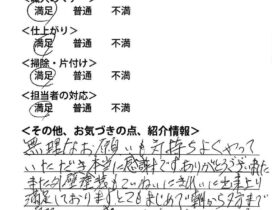 満足 普通 不満
<仕上がり>
満足 普通 不満
<掃除・片付け>
満足 普通 不満
<担当者の対応>
満足 普通 不満
<その他、お気づきの点、紹介情報>
無理なお願いも気持ちよくやって
いただき本当に感謝です ありがとうございました
また外壁塗装もていねいにきれいに出来上り
満足しております とてもまじめで朝から夕方まで